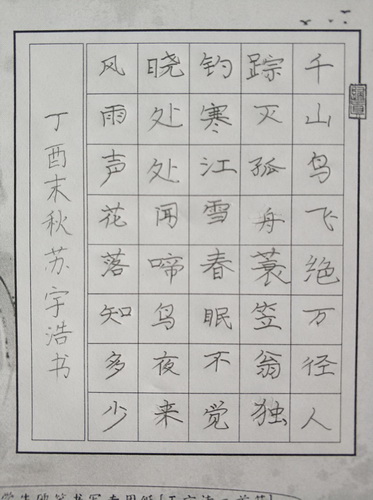 千山鸟飞绝万径人
踪灭孤舟蓑笠翁独
钓寒江雪春眠不觉
晓处处闻啼鸟夜来
风雨声花落知多少
丁酉末秋苏宇浩书